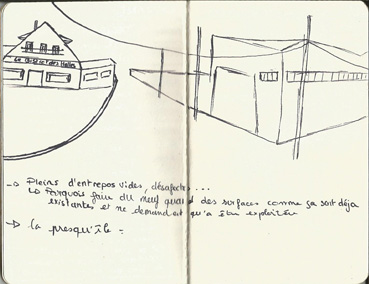 Le Bistrot des Halles
→ Pleins d'entrepos vides, désafectés...
↳ Pourquoi faire du neuf quand des surfaces comme ça sont déjà
existantes et ne demandent qu'à être exploitées
→ La presqu'île =